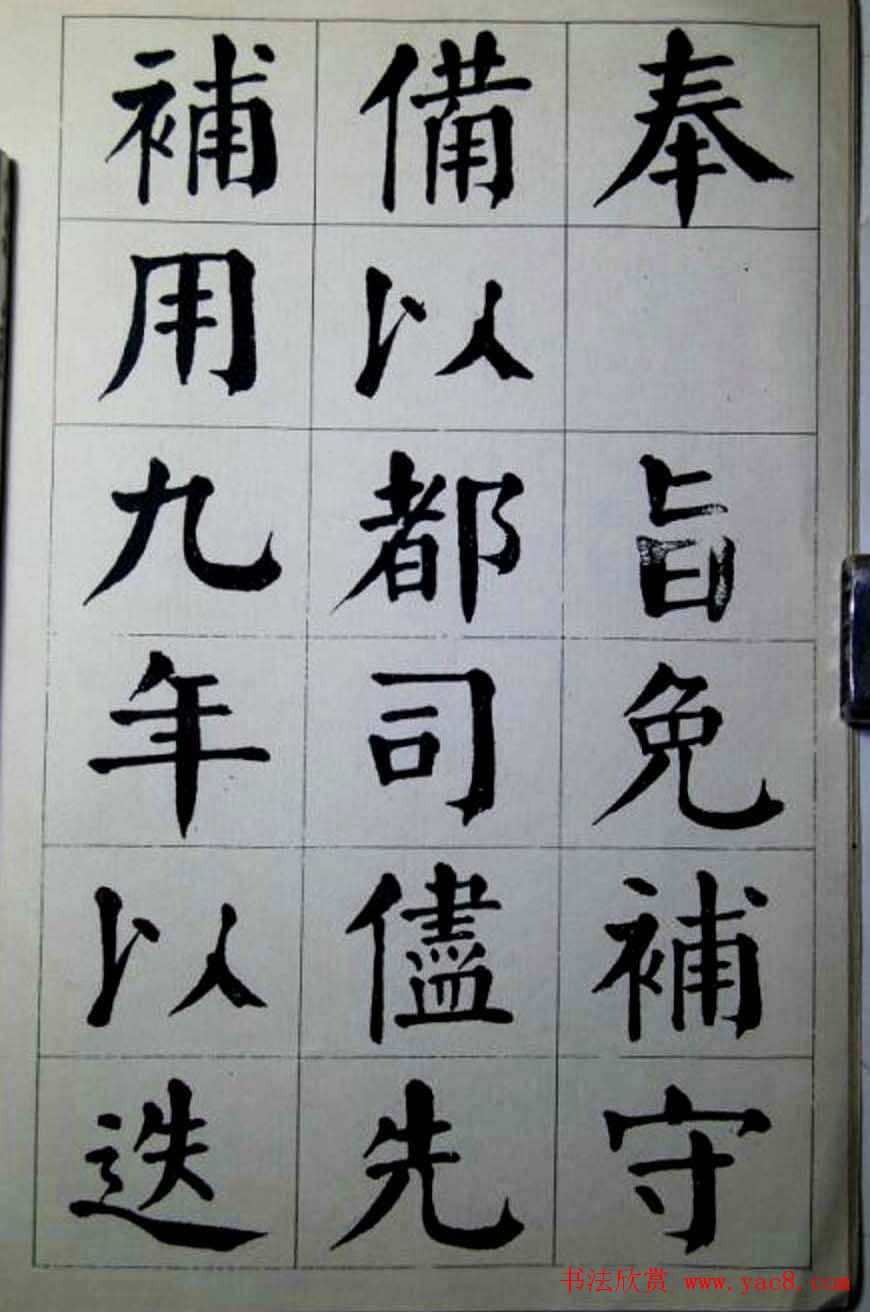 奉 旨免補守
備以都司儘先
補用九年以迭
书法欣赏 www.yac8.com